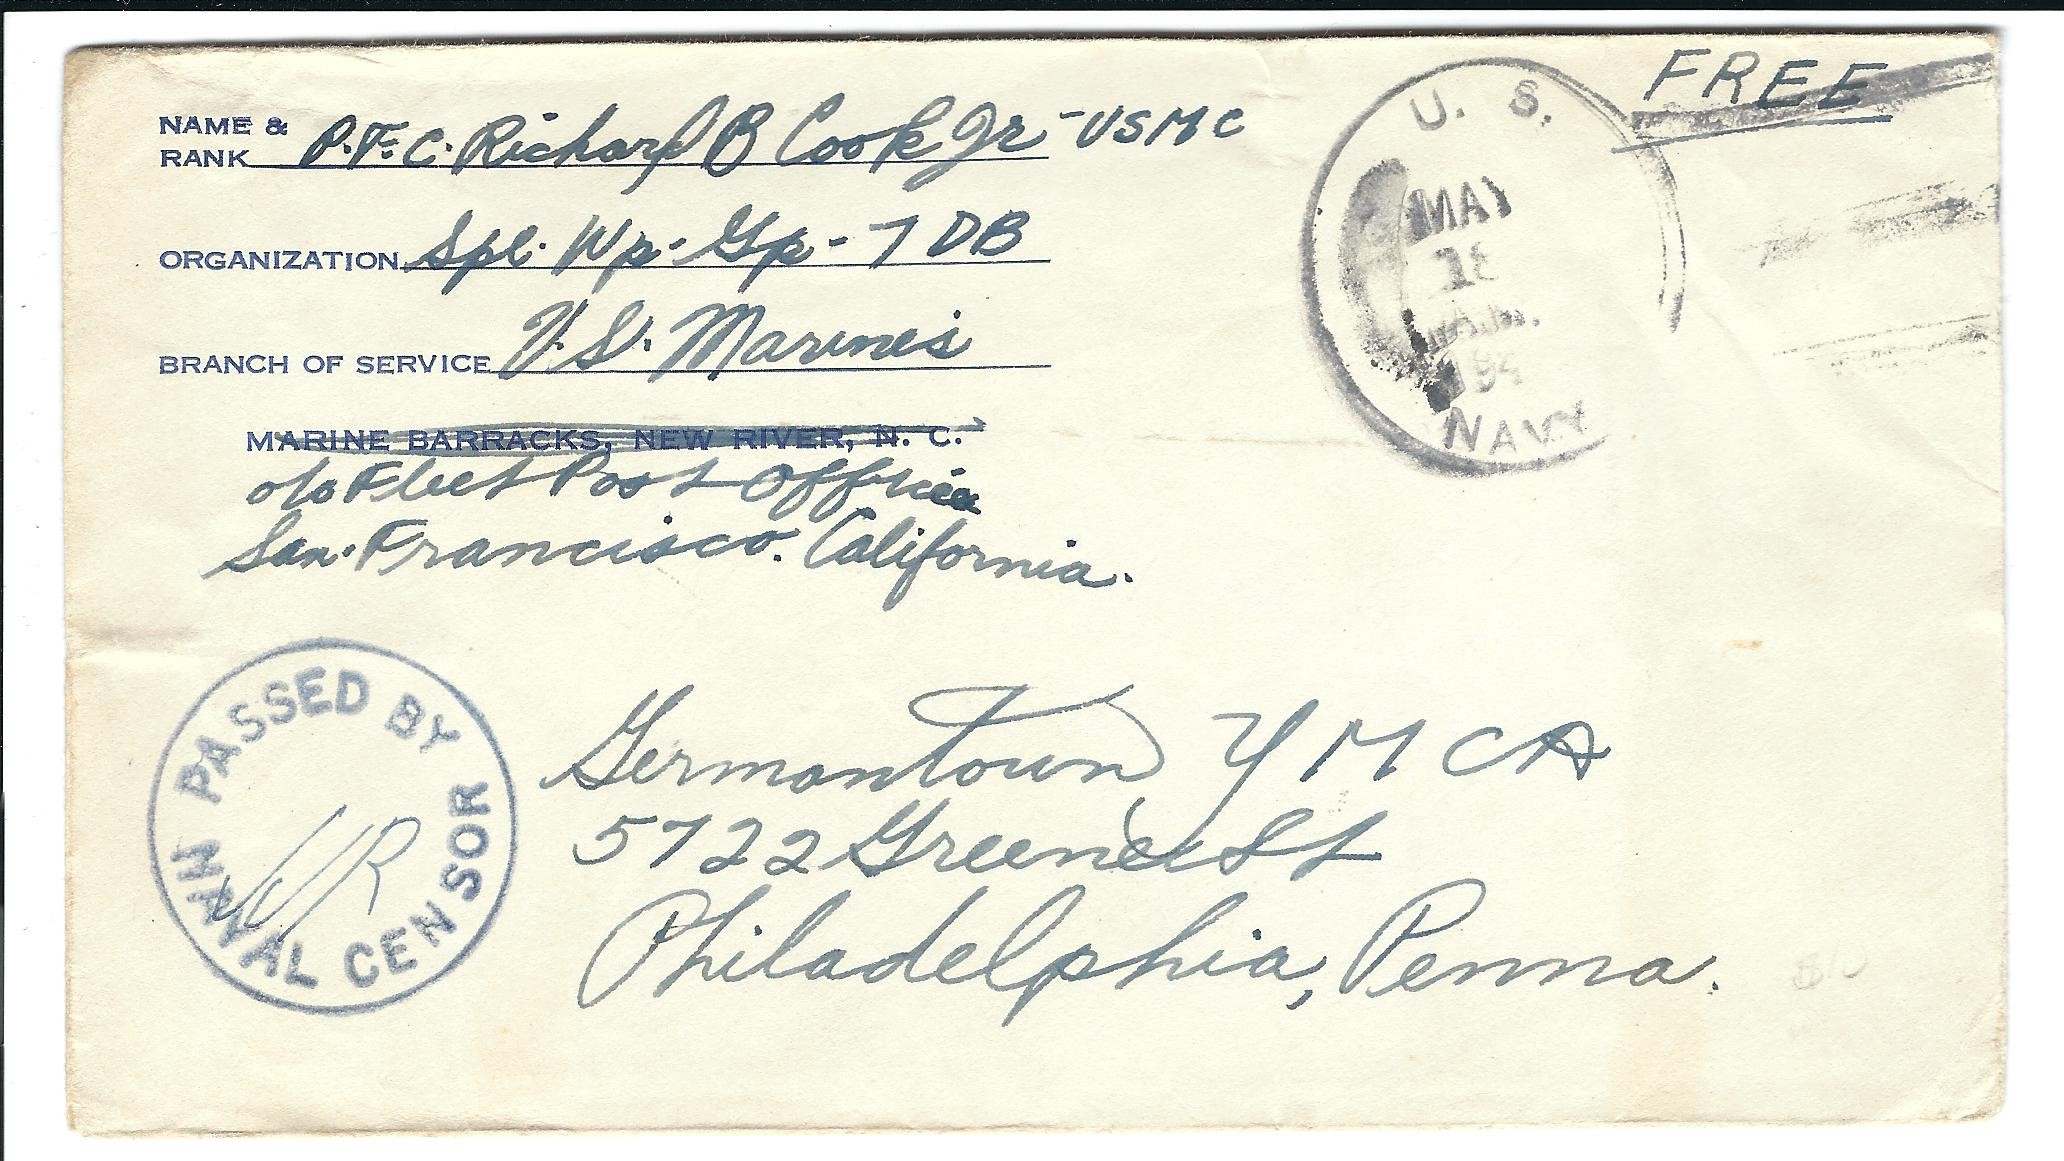 FREE
NAME &
RANK P.F.C. Richard B Cook Jr - USMC
ORGANIZATION Spl. Wp. Gp - 7 DB
BRANCH OF SERVICE U.S. Marines
MARINE BARRACKS, NEW RIVER, N. C.
c/o Fleet Post Office
San. Francisco. California.
U. S.
MAY
18
A.M.
194
NAVY
PASSED BY
NAVAL CENSOR
Germantown YMCA
5722 Greene St
Philadelphia, Penna.